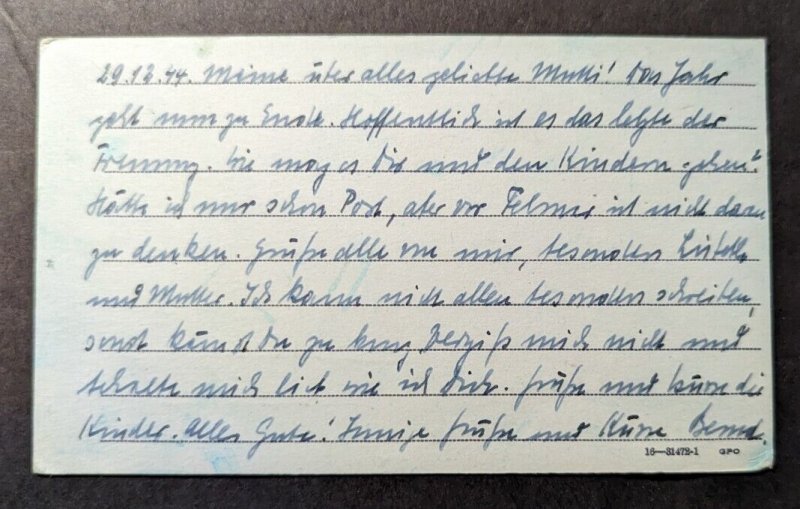 29.12.44. Meine über alles geliebte Mutti! Das Jahr
geht nun zu Ende. Hoffentlich ist es das letzte der
Trennung. Wie mag es Dir und den Kindern gehen?
Hätte ich nur schon Post, aber vor Februar ist nicht daran
zu denken. Grüße alle von mir, besonders
und Mutter. Ich kann nicht allen besonders schreiben,
sonst kämst Du zu kurz. Vergiß mich nicht und
behalte mich lieb wie ich Dich. Grüße und küsse die
Kinder. Alles Gute! Innige Grüße und Küsse Bernd.
16—81472-1 GPO